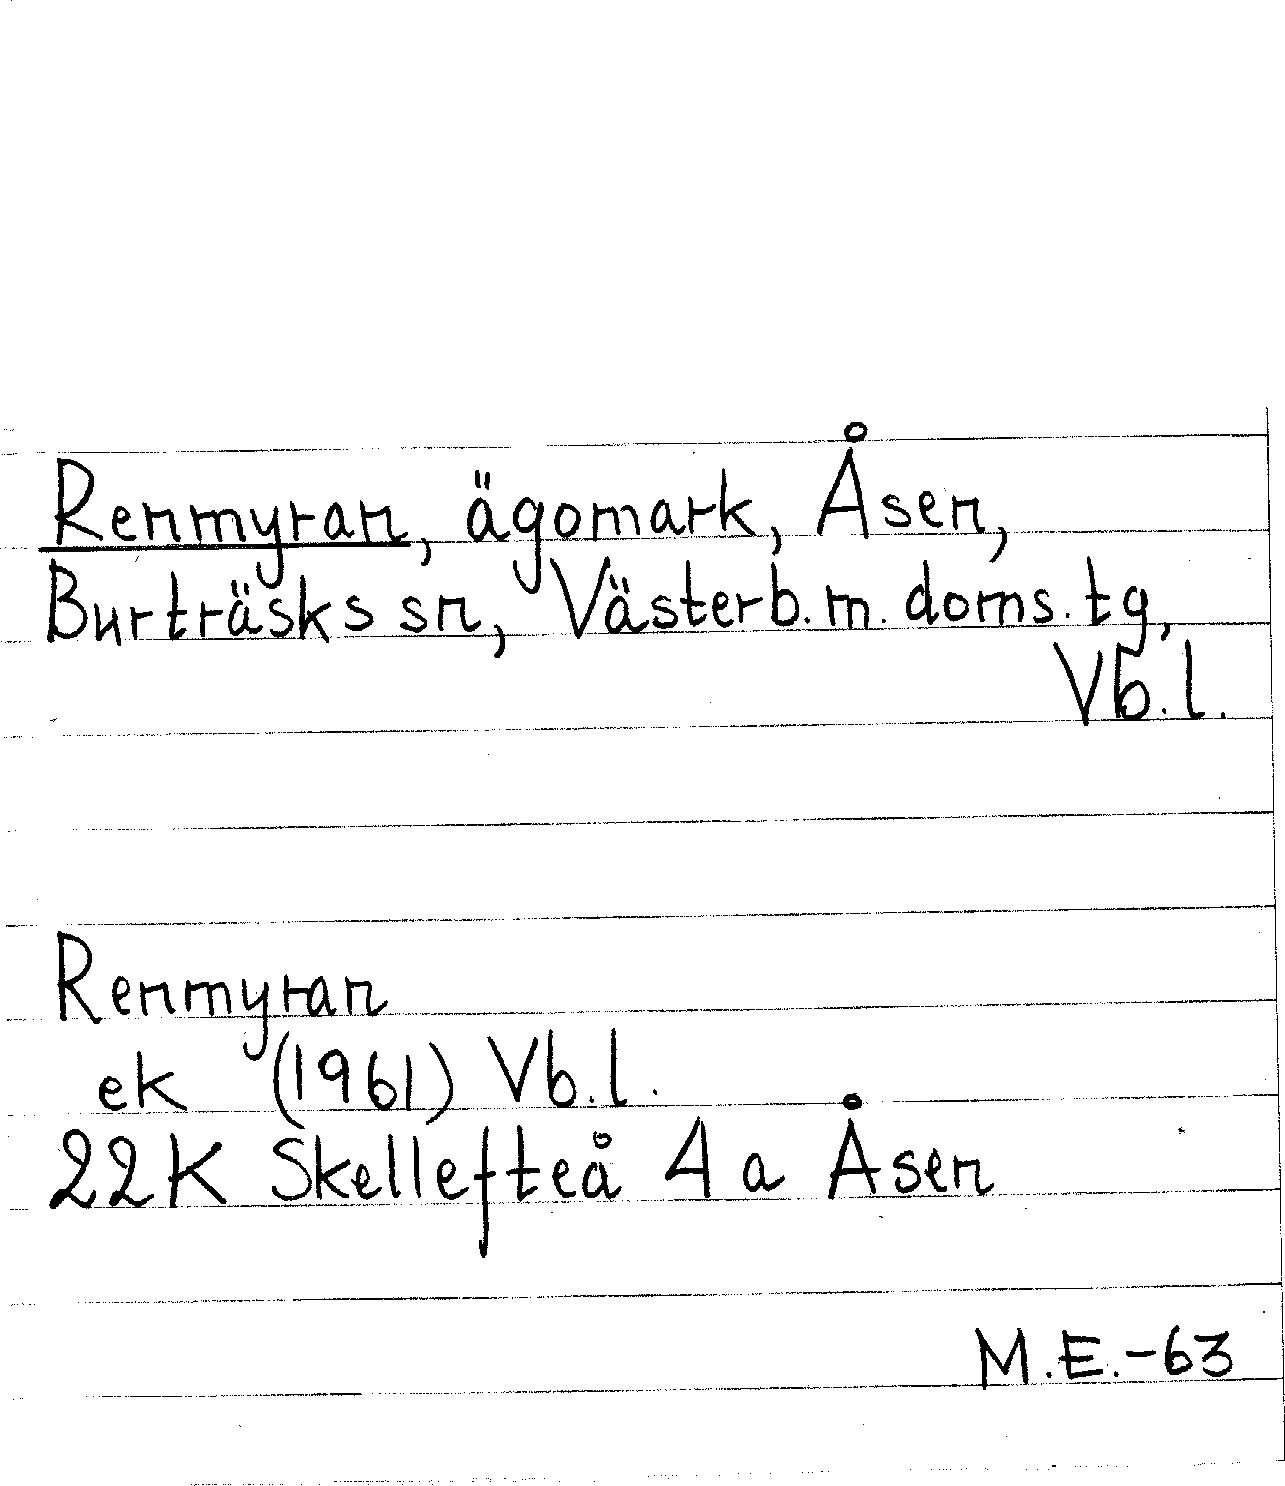 Renmyran, ägomark, Åsen,
Burträsks sn, Västerb.m. doms. tg,
Vb.l.
Renmyran
ek (1961) Vb.l.
22K Skellefteå 4a Åsen
M.E.-63